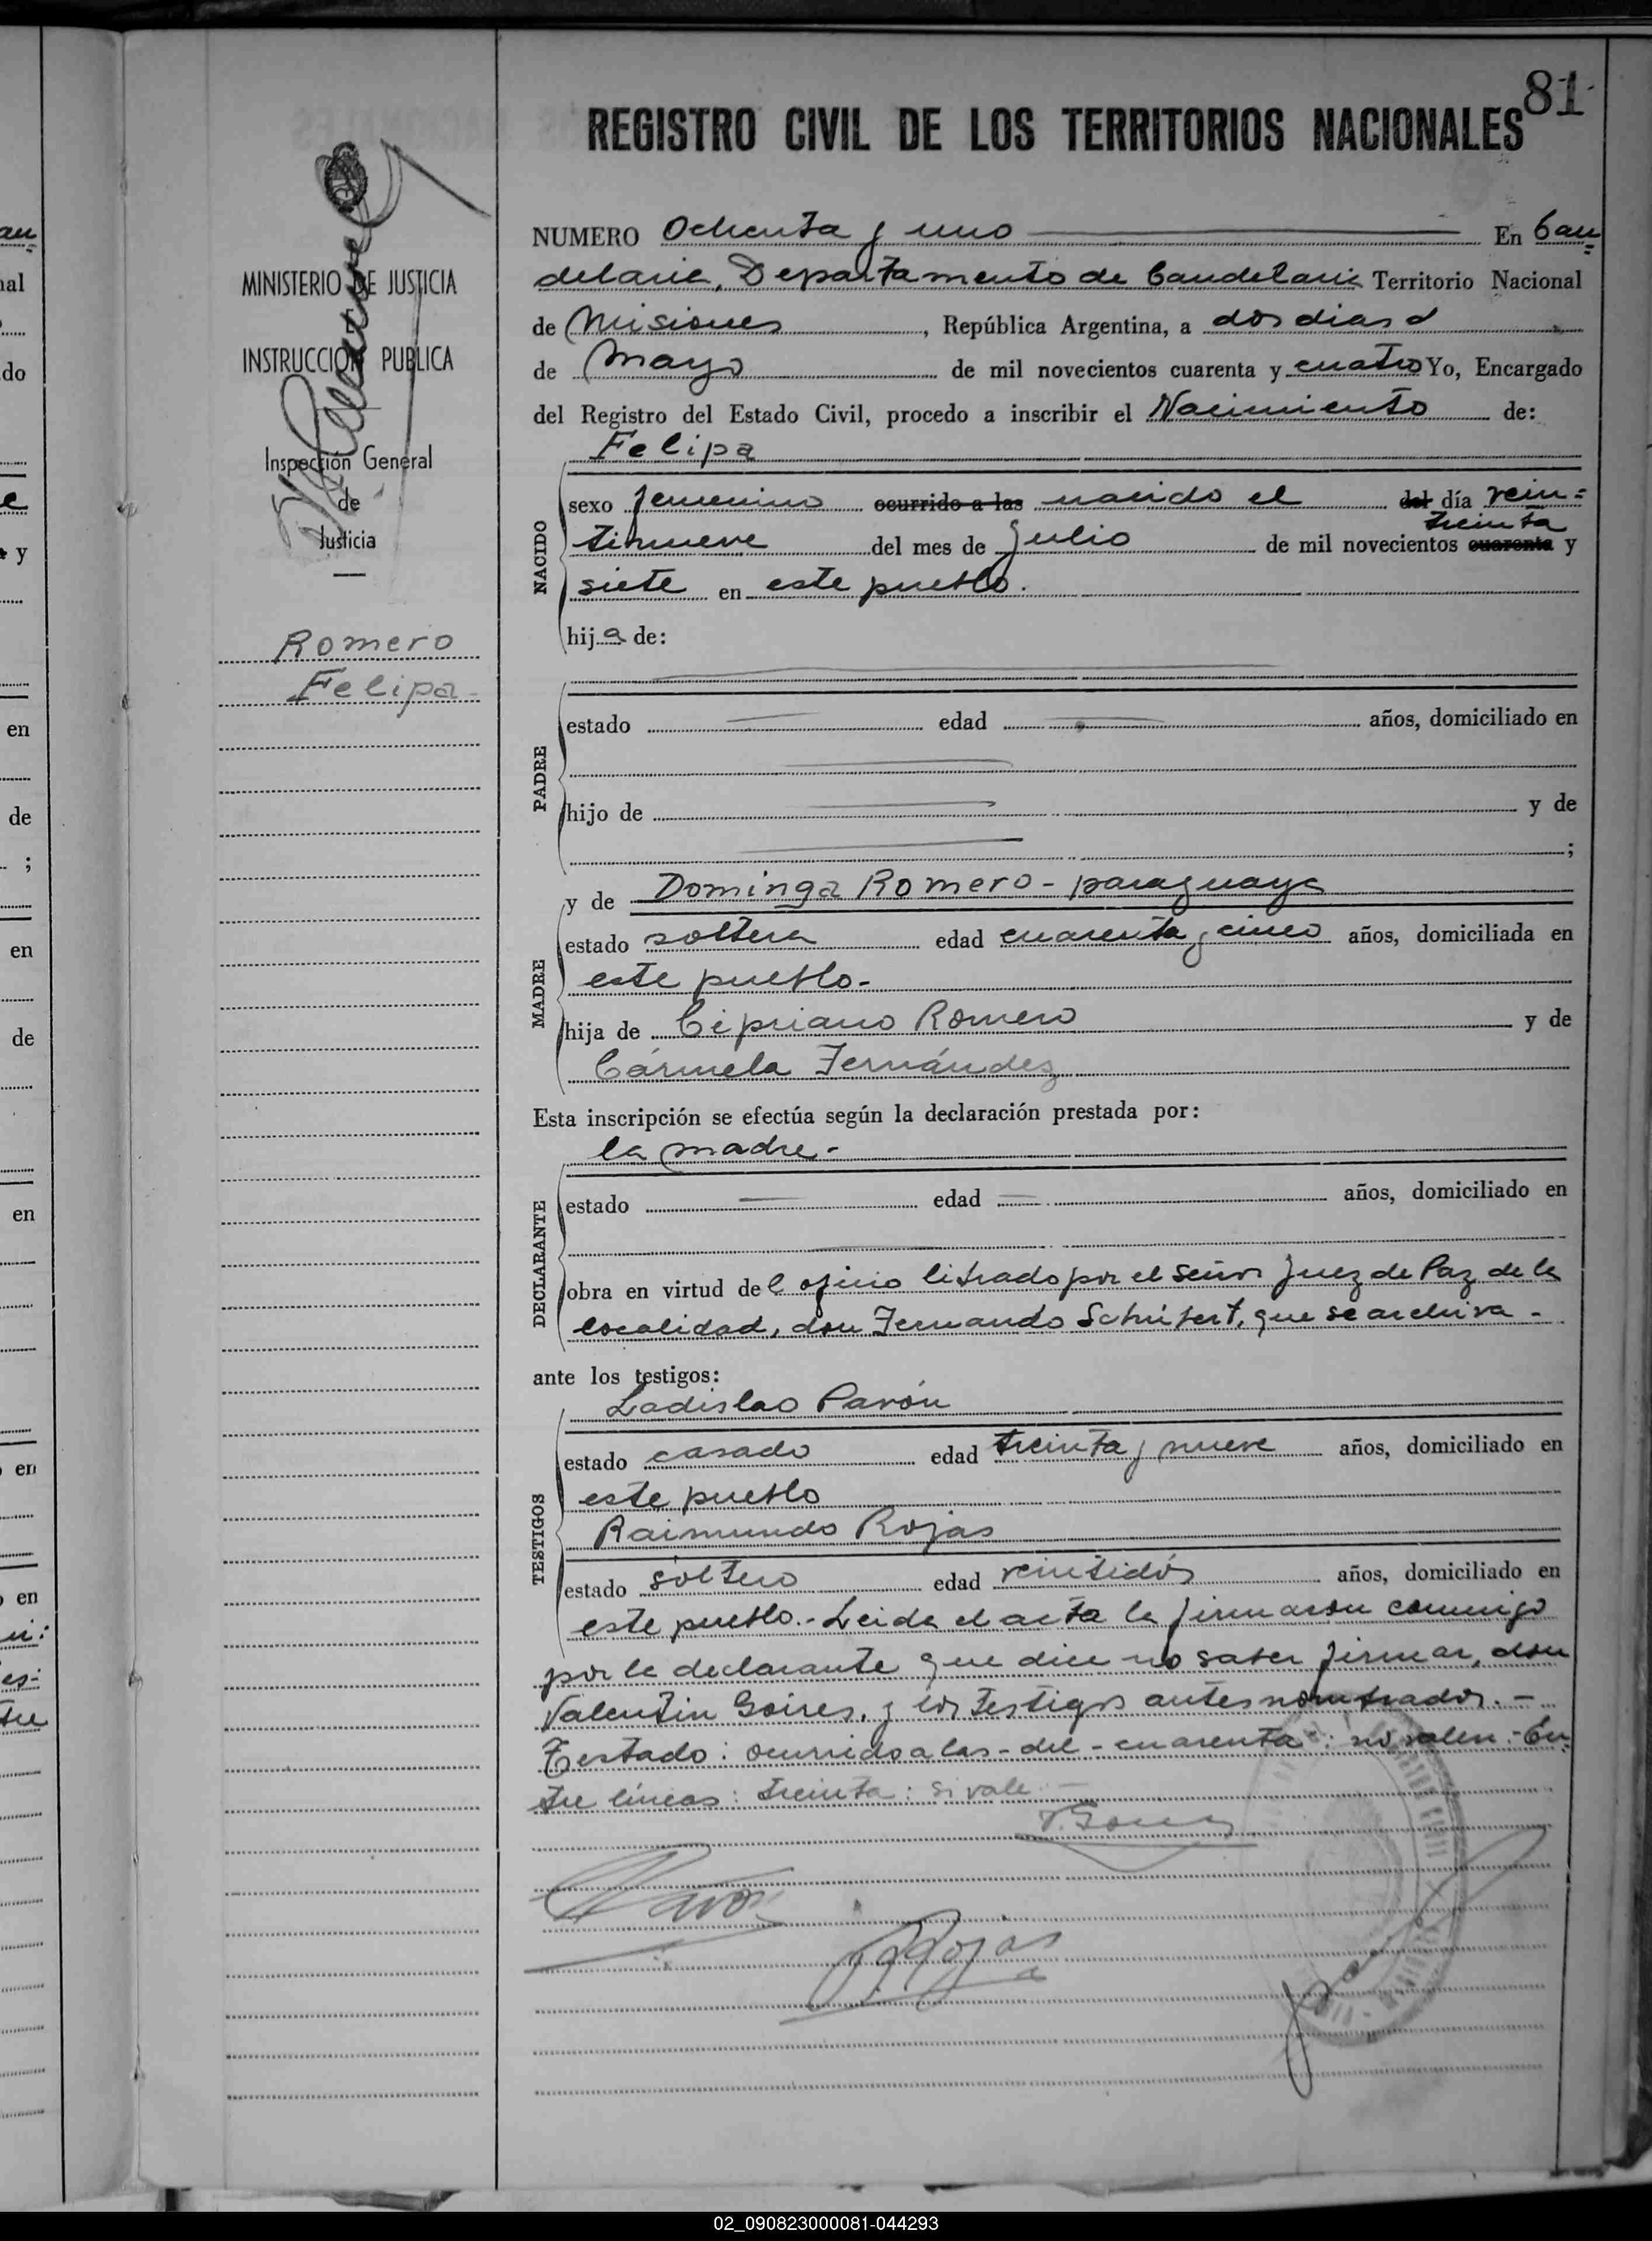 81
REGISTRO CIVIL DE LOS TERRITORIOS NACIONALES
MINISTERIO DE JUSTICIA
INSTRUCCION PUBLICA
Inspección General
de
Justicia
Romero
Felipa
NUMERO Ochenta y uno En Can=
delaria, Departamento de Candelaria Territorio Nacional
de Misiones, República Argentina, a dos dias d
de Mayo de mil novecientos cuarenta y cuatro Yo, Encargado
del Registro del Estado Civil, procedo a inscribir el Nacimiento de:
Felipa
NACIDO
sexo femenino ocurrido a las nacido el del día vein=
treinta
tinueve del mes de Julio de mil novecientos cuarenta y
siete en este pueblo.
hija de:
PADRE
estado edad años, domiciliado en
hijo de y de
;
MADRE
y de Dominga Romero - paraguaya
estado soltera edad cuarenta y cinco años, domiciliada en
este pueblo.-
hija de Cipriano Romero y de
Cármela Fernández
Esta inscripción se efectúa según la declaración prestada por:
la madre.-
DECLARANTE
estado edad años, domiciliado en
obra en virtud del oficio librado por el Señor Juez de Paz de la
localidad, don Fernando que se archiva.-
ante los testigos:
TESTIGOS
Ladislao Pavón
estado casado edad treinta y nueve años, domiciliado en
este pueblo
Raimundo Rojas
estado soltero edad veintidós años, domiciliado en
este pueblo.- Leida el acta la firmaron conmigo
por la declarante que dice no saber firmar, don
Valentin Goires, y los testigos antes nombrados.-
Testado: ocurrido a las - del - cuarenta: no valen.- En=
tre líneas: treinta: si vale.-
R Rojas
en
de
;
en
de
en
en
en
02_090823000081-044293